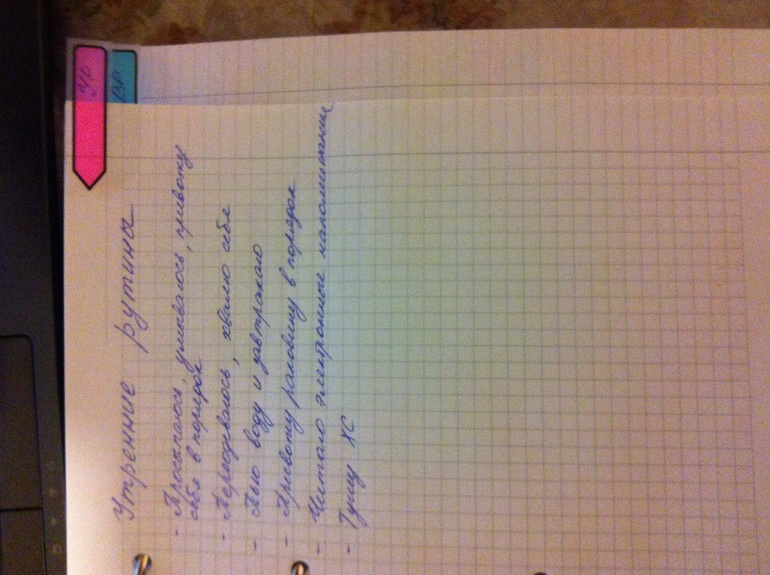 УР
ВР
Утренние рутины
- Просыпаюсь, умываюсь, привожу
себя в порядок
- Переодеваюсь, хвалю себя
- Пью воду и завтракаю
- Привожу раковину в порядок
- Читаю электронные напоминания
- Тушу ХС